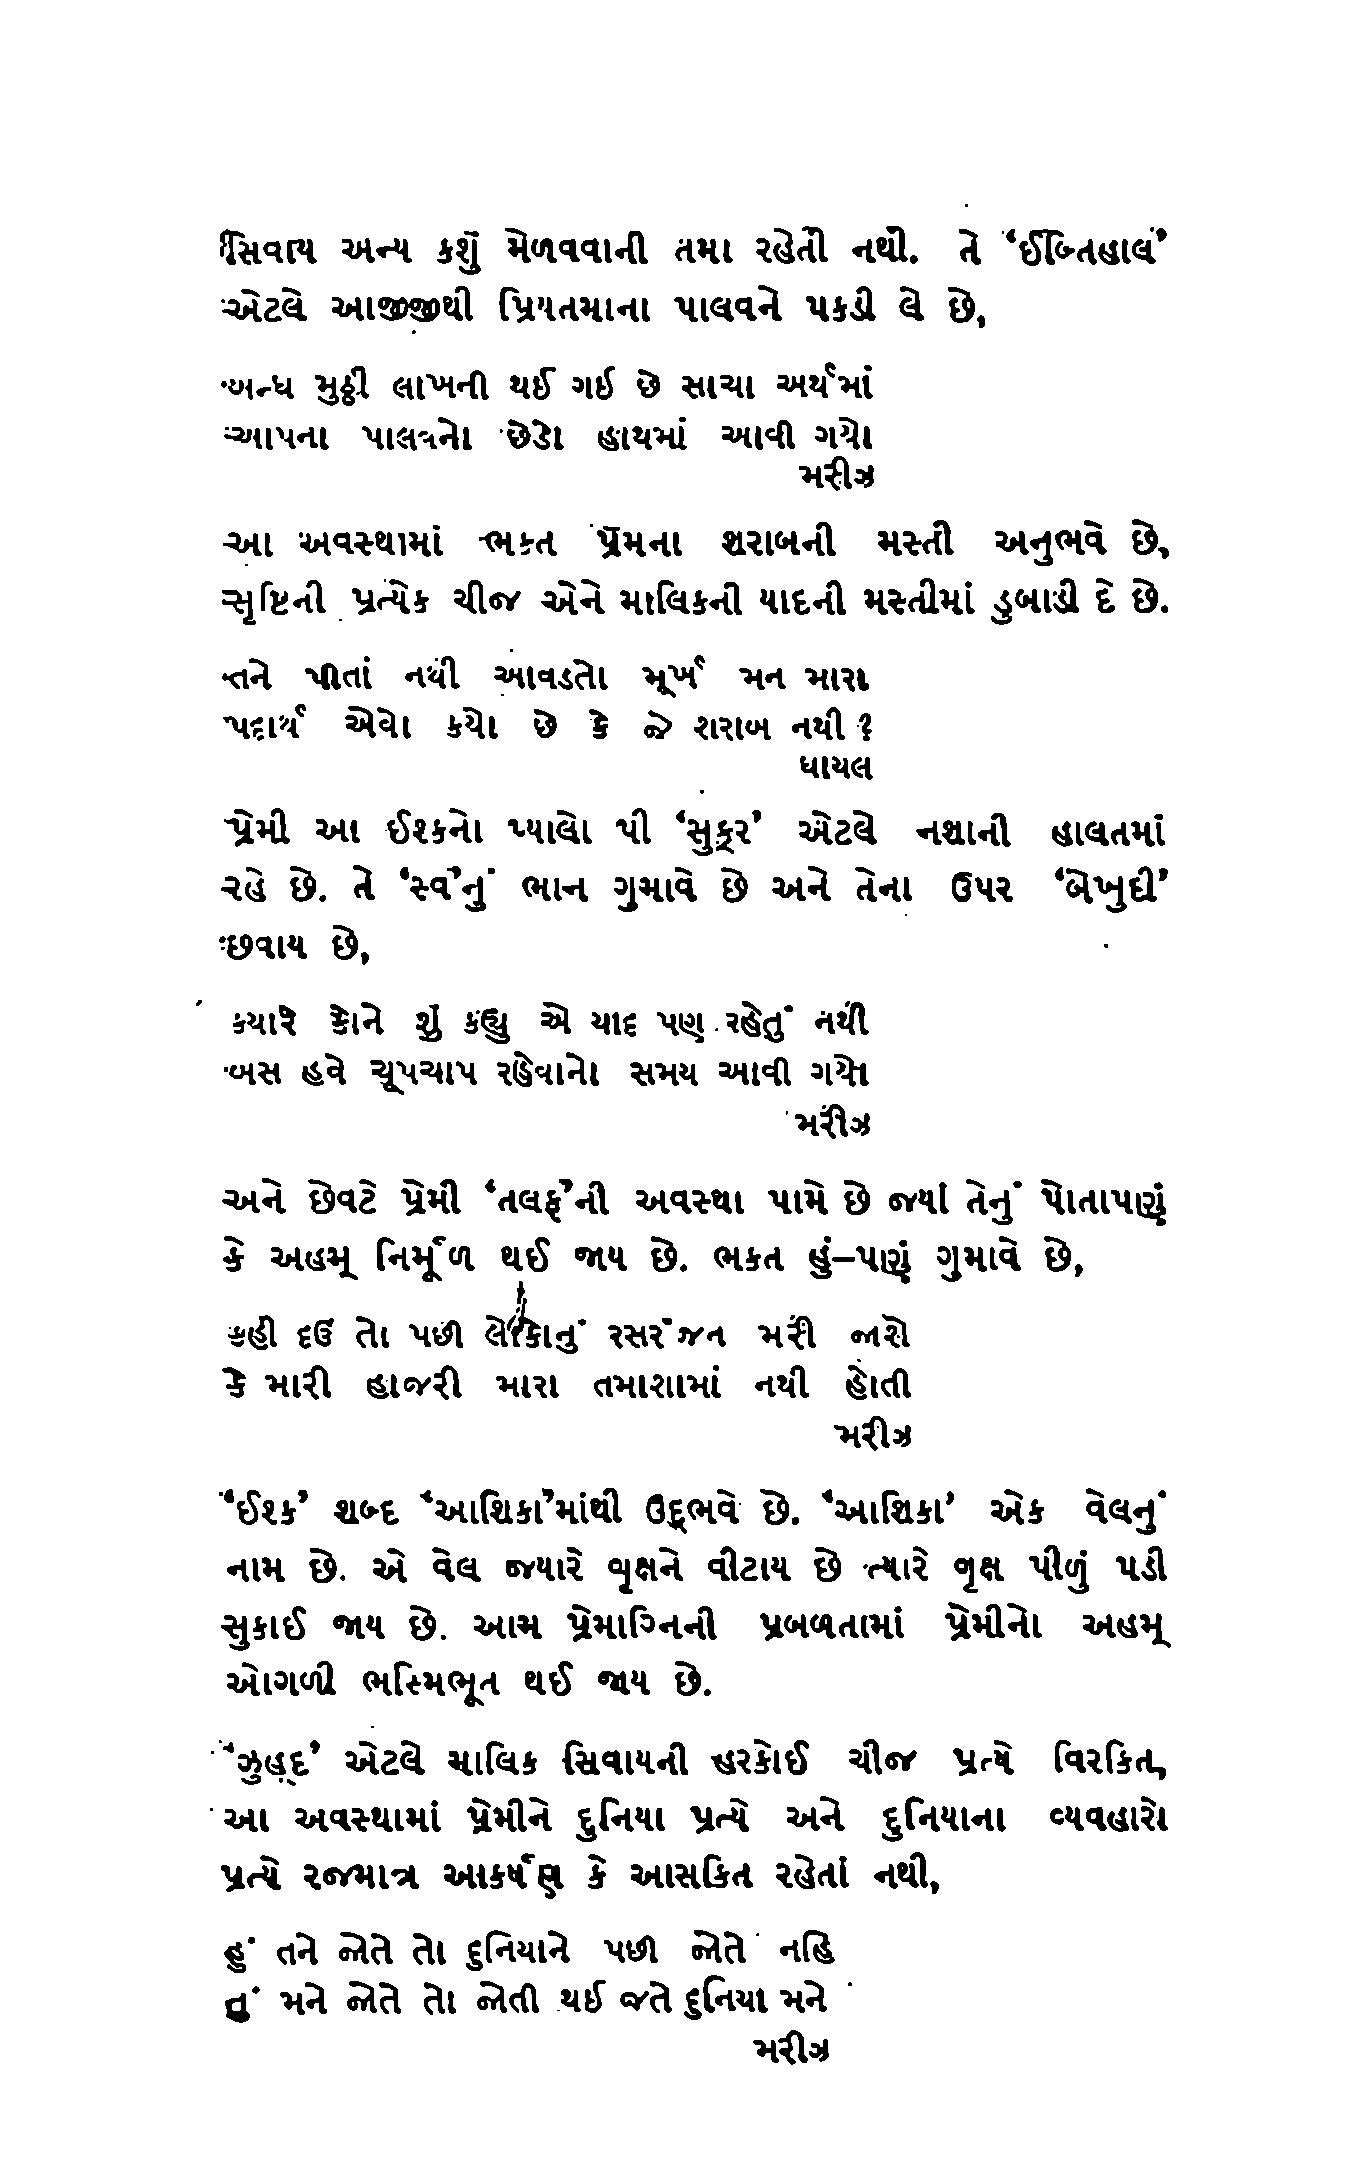 સિવાય અન્ય કશું મેળવવાની તમા રહેતી નથી. તે ‘ઈબ્તિહાલ’
એટલે આજીજીથી પ્રિયતમાના પાલવને પકડી લે છે,
બન્ધ મુઠ્ઠી લાખની થઈ ગઈ છે સાચા અર્થમાં
આપના પાલવનો છેડો હાથમાં આવી ગયો
મરીઝ
આ અવસ્થામાં ભક્ત પ્રેમના શરાબની મસ્તી અનુભવે છે,
સૃષ્ટિની પ્રત્યેક ચીજ એને માલિકની યાદની મસ્તીમાં ડુબાડી દે છે.
તને પીતાં નથી આવડતો મૂર્ખ મન મારા
પદાર્થ એવો કયો છે કે જે શરાબ નથી ?
ઘાયલ
પ્રેમી આ ઈશ્કનો પ્યાલો પી ‘સુક્ર’ એટલે નશાની હાલતમાં
રહે છે. તે ‘સ્વ’નું ભાન ગુમાવે છે અને તેના ઉપર ‘બેખુદી’
છવાય છે,
ક્યારે કોને શું કહ્યુ એ યાદ પણ રહેતું નથી
બસ હવે ચૂપચાપ રહેવાનો સમય આવી ગયો
મરીઝ
અને છેવટે પ્રેમી ‘તલફ’ની અવસ્થા પામે છે જ્યાં તેનું પોતાપણું
કે અહમ્ નિર્મૂળ થઈ જાય છે. ભક્ત હું–પણું ગુમાવે છે,
કહી દઉં તો પછી લોકોનું રસરંજન મરી જાશે
કે મારી હાજરી મારા તમાશામાં નથી હોતી
મરીઝ
‘ઈશ્ક’ શબ્દ ‘આશિકા’માંથી ઉદ્ભવે છે. ‘આશિકા’ એક વેલનું
નામ છે. એ વેલ જ્યારે વૃક્ષને વીટાય છે ત્યારે વૃક્ષ પીળું પડી
સુકાઈ જાય છે. આમ પ્રેમાગ્નિની પ્રબળતામાં પ્રેમીનો અહમ્
ઓગળી ભસ્મિભૂત થઈ જાય છે.
‘ઝુહ્દ’ એટલે માલિક સિવાયની હરકોઈ ચીજ પ્રત્યે વિરકિત,
આ અવસ્થામાં પ્રેમીને દુનિયા પ્રત્યે અને દુનિયાના વ્યવહારો
પ્રત્યે રજમાત્ર આકર્ષણ કે આસકિત રહેતાં નથી,
હું તને જોતે તો દુનિયાને પછી જોતે નહિ
તું મને જોતે તો જોતી થઈ જતે દુનિયા મને
મરીઝ